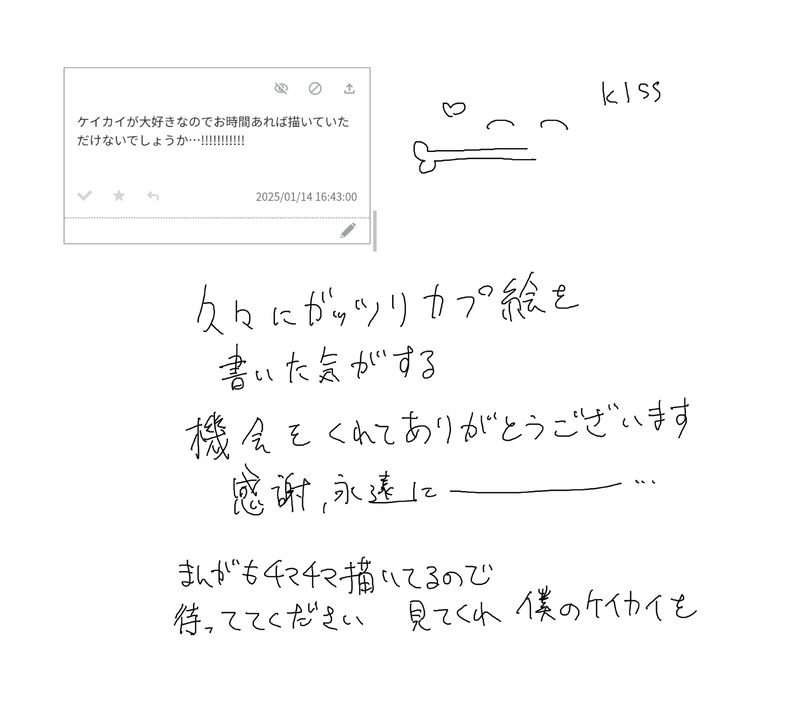 ケイカイが大好きなのでお時間あれば描いていた
だけないでしょうか…!!!!!!!!!!!
2025/01/14 16:43:00
kiss
久々にガッツリカプ絵を
書いた気がする
機会をくれてありがとうございます
感謝,永遠に――…
まんがもチマチマ描いてるので
待っててください 見てくれ 僕のケイカイを